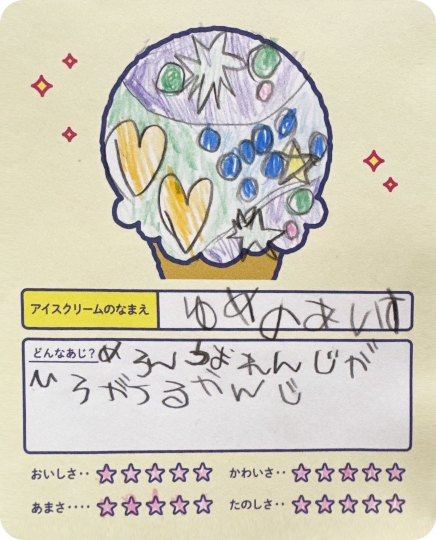 アイスクリームのなまえ ゆめのあいす
どんなあじ? めろん ちょ れんじが
ひろがってるかんじ
おいしさ‥ ☆☆☆☆☆ かわいさ‥ ☆☆☆☆☆
あまさ‥‥ ☆☆☆☆☆ たのしさ‥ ☆☆☆☆☆